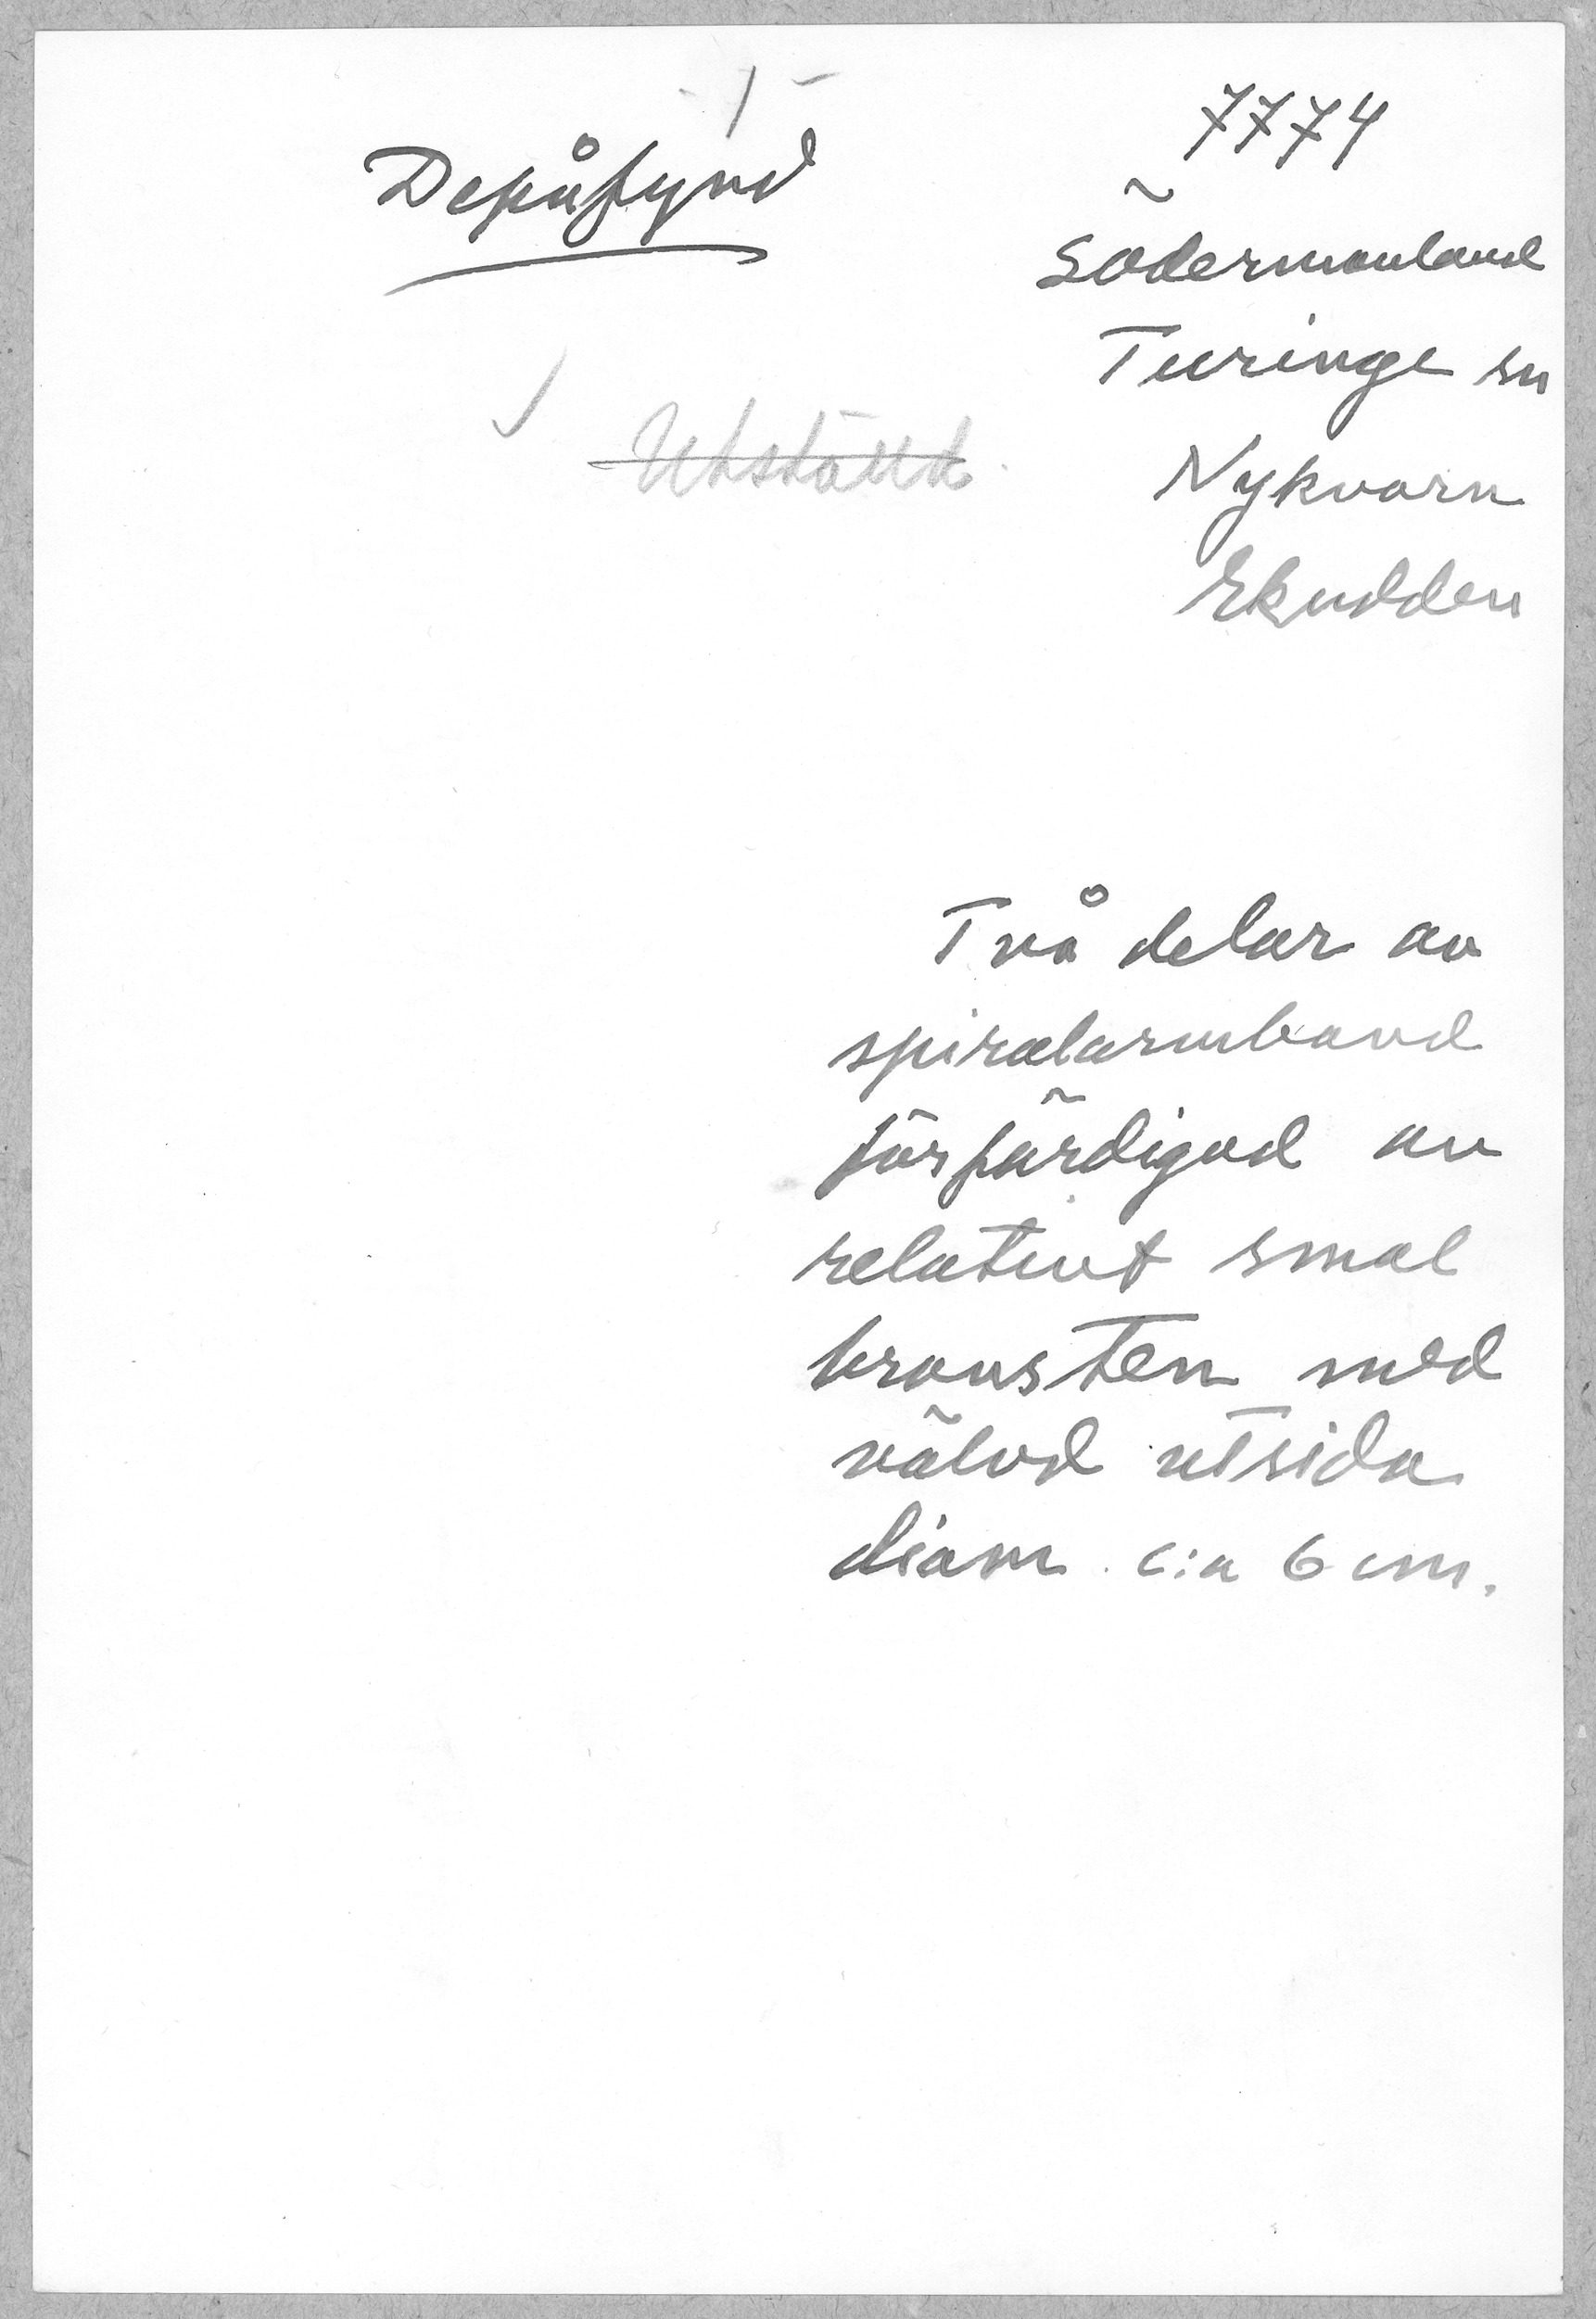 7774
Depåfynd
Södermanland
Turinge sn
Utställd
Nykvarn
Ekudden
Två delar av
spiralarmband
förfärdigad av
relativt smal
bronsten med
välvd utsida
diam. c:a 6 cm.